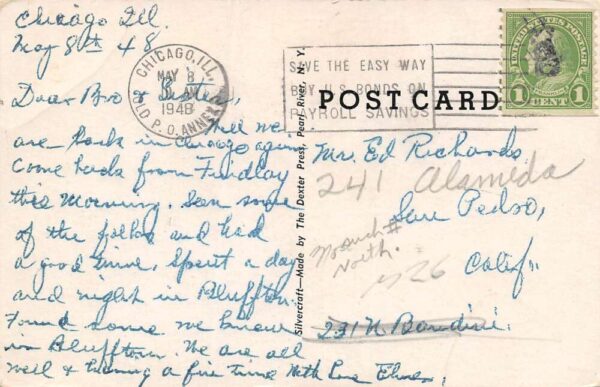 Chicago Ill.
May 8th 48
Dear Bro & Sister,
Well we
are back in Chicago again
Come back from Findlay
this Morning. Seen some
of the folks and had
a good time, Spent a day
and night in Bluffton.
Found some we knew
in Bluffton. We are all
well & having a fine time With Love
CHICAGO, ILL.
MAY 8
AM
1948
P. O. ANNEX
SAVE THE EASY WAY
BUY U.S. BONDS ON
PAYROLL SAVINGS
UNITED STATES POSTAGE
1 CENT 1
POST CARD
Silvercraft—Made by The Dexter Press, Pearl River, N. Y.
Mr. Ed Richards
241 Alameda
San Pedro,
No such #
North.
Calif
231 N Bandini.